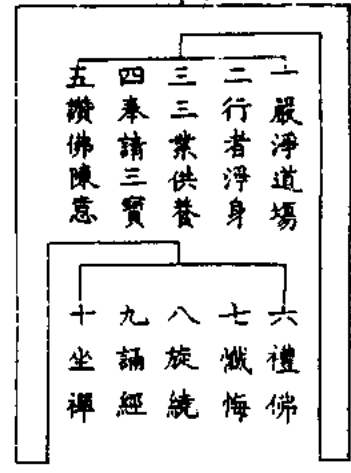 一嚴淨道場
二行者淨身
三三業供養
四奉請三寶
五讚佛陳意
六禮佛
七懺悔
八旋繞
九誦經
十坐禪